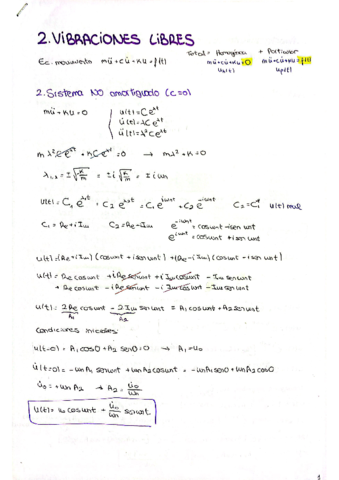 2. VIBRACIONES LIBRES
Total = Homogénea + Particular
Ec. movimiento mü + cu̇ + ku = f(t) mü+cu̇+ku=0 mü+cu̇+ku=f(t)
u_h(t) u_p(t)
2. Sistema NO amortiguado (c=0)
mü + ku = 0 u(t) = Ce^λt
u̇(t) = λCe^λt
ü(t) = λ²Ce^λt
mλ²Ce^λt + kCe^λt = 0 → mλ² + k = 0
λ₁,₂ = ±√-k/m = ±i√k/m = ±iωn
u(t) = C₁e^λt + C₂e^λt = C₁e^iωnt + C₂e^-iωnt C₂ = C₁* u(t) real
C₁ = Re + i Im C₂ = Re - i Im e^-iωnt = cosωnt - i sen ωnt
e^iωnt = cosωnt + i sen ωnt
u(t) = (Re + i Im)(cosωnt + i sen ωnt) + (Re - i Im)(cosωnt - i sen ωnt)
u(t) = Re cosωnt + i Re senωnt + i Im cosωnt - Im senωnt
+ Re cosωnt - i Re senωnt - i Im cosωnt - Im senωnt
u(t) = 2Re cosωnt - 2Im senωnt = A₁cosωnt + A₂senωnt
A₁ A₂
Condiciones iniciales:
u(t=0) = A₁ cos0 + A₂ sen0 = u₀ → A₁ = u₀
u̇(t=0) = -ωnA₁ senωnt + ωnA₂ cosωnt = -ωnA₁sen0 + ωnA₂cos0
u̇₀ = +ωnA₂ → A₂ = u̇₀/ωn
u(t) = u₀ cosωnt + u̇₀/ωn senωnt
1